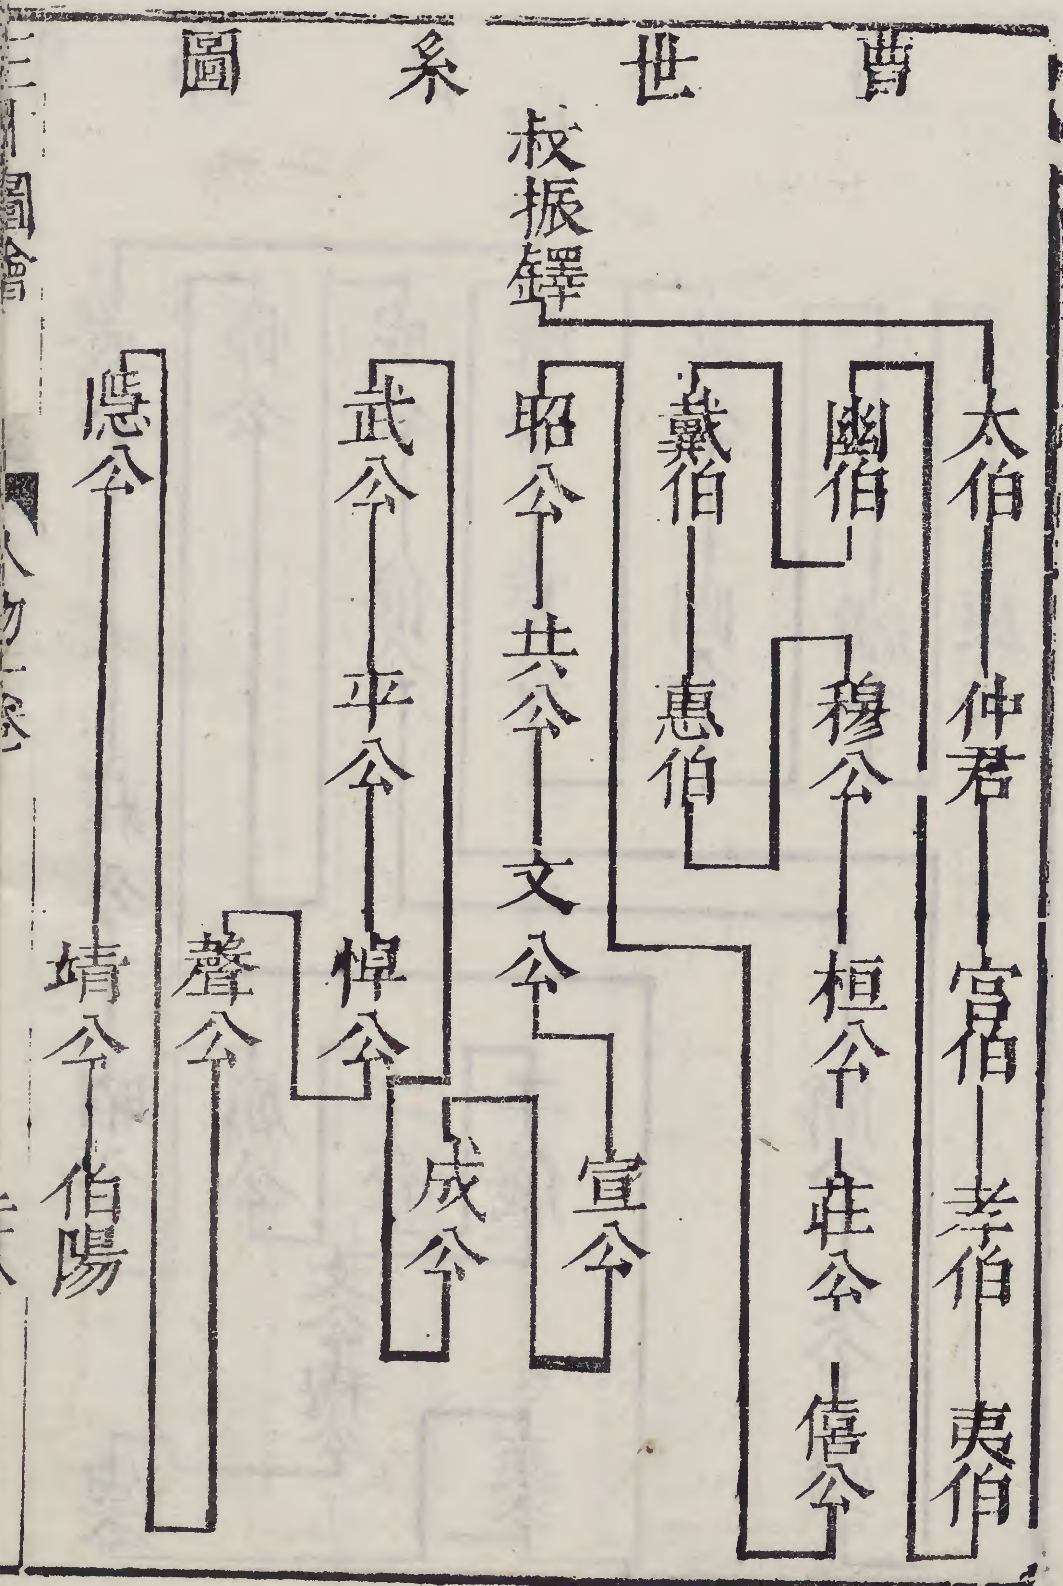 曹世系圖
叔振鐸
太伯
仲君
宮伯
孝伯
夷伯
幽伯
戴伯
惠伯
穆公
桓公
莊公
僖公
昭公
共公
文公
宣公
成公
武公
平公
悼公
聲公
隱公
靖公
伯陽
圖會
人物